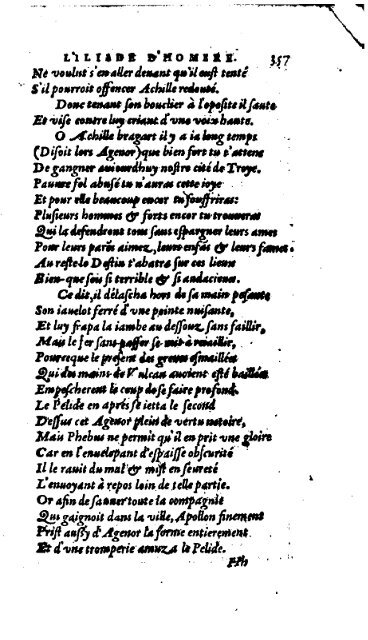 L'ILIADE D'HOMERE. 357
Ne voulut s'en aller deuant qu'il eust tenté
S'il pourroit offencer Achille redouté.
Donc tenant son bouclier à l'oposite il saute
Et vise contre luy criant d'vne voix haute.
O Achille bragart il y a ia long temps
(Disoit lors Agenor) que bien fort tu t'attens
De gangner auiourdhuy nostre cité de Troye.
Pauure fol abusé tu n'auras cette ioye
Et pour elle beaucoup encor tu souffriras:
Plusieurs hommes & forts encor tu trouueras
Qui la defendront tous sans espargner leurs ames
Pour leurs parẽs aimez, leurs enfãs & leurs femes:
Au reste le Destin t'abatra sur ces lieux
Bien-que sois si terrible & si audacieux.
Ce dit, il délascha hors de sa main pesante
Son iauelot ferré d'vne pointe nuisante,
Et luy frapa la iambe au dessouz sans faillir,
Mais le fer sans passer se mit à
Pourceque le present des greues esmaillées
Qui des mains de Vulcan auoient esté baillées
Empescherent le coup de se faire profond.
Le Pelide en aprés se ietta le second
Dessus cet Agenor plein de vertu notoire,
Mais Phebus ne permit qu'il en prit vne gloire
Car en l'enuelopant d'espaisse obscurité
Il le rauit du mal & mist en seureté
L'enuoyant à repos loin de telle partie.
Or afin de sauuer toute la compagnie
Qui gaignoit dans la ville, Apollon finement
Prist aussy d'Agenor la forme entierement
Et d'vne tromperie amuza le Pelide.